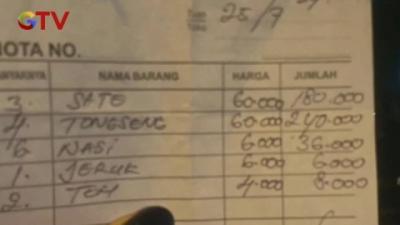 GTV
25/7
NOTA NO.
NAMA BARANG HARGA JUMLAH
3. SATE 60.000 180.000
4. TONGSENG 60.000 240.000
6 NASI 6000 36.000
1. JERUK 6.000 6000
2. TEH 4.000 8.000